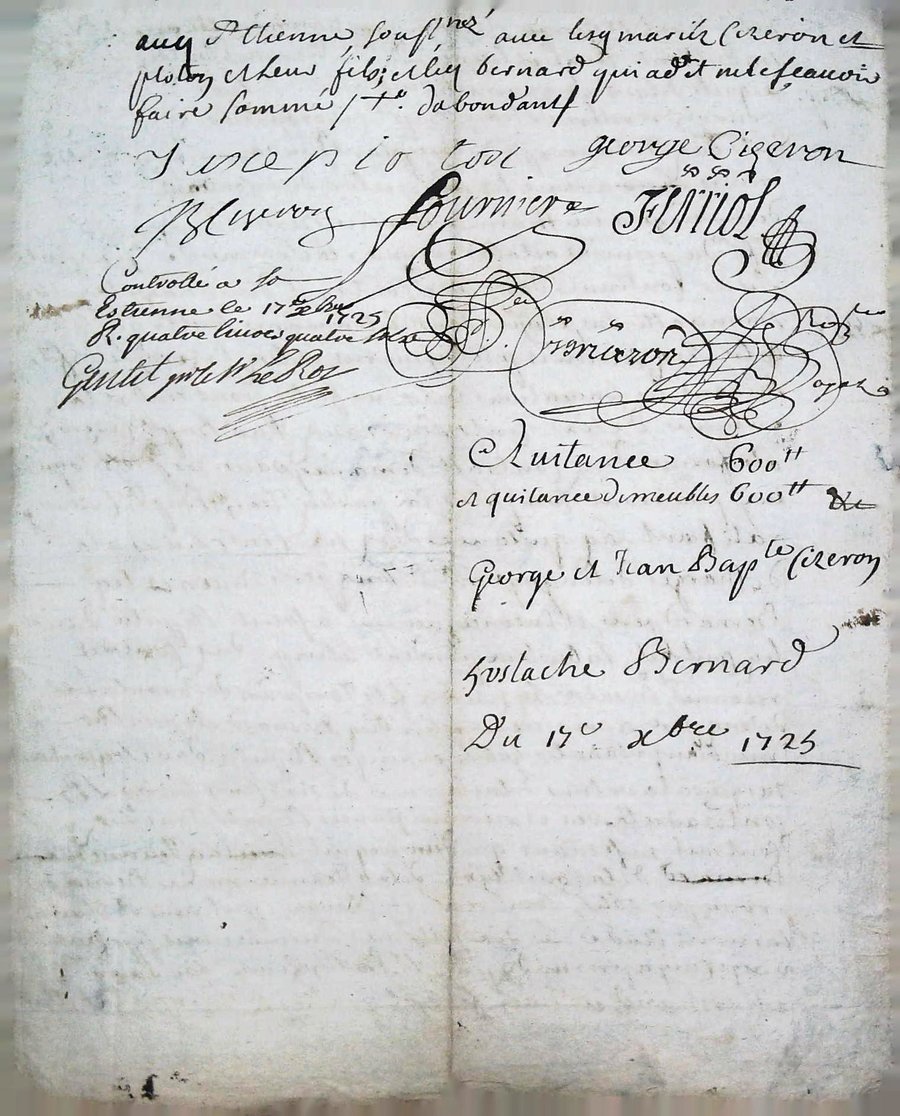 aud St Etienne soussnez avec lesq mariez Cizeron et
ploton et leur fils; et led bernard qui a dit ne le scauoir
faire sommé s + e dabondant
Josepioton george Cizeron
JBCizeron fournier ferriol
Controllé a St
Estienne le 17e xbre
1725
R. quatre liures quatre sols
Gentet pr le Sr Le Roy
not re
royal
Quitance 600tt
et quitance de meubles 600tt
George et Jean Bapte Cizeron
Eustache Bernard
Du 17e xbre 1725